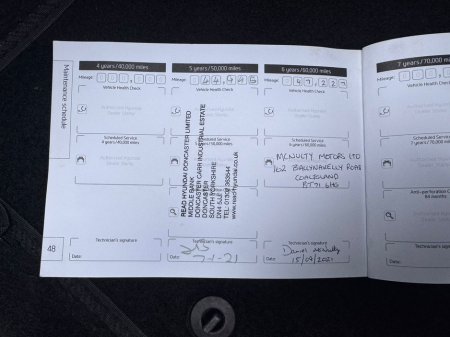 Maintenance schedule
48
4 years/40,000 miles
Mileage:
Vehicle Health Check
Authorised Hyundai
Dealer Stamp
Scheduled Service
4 years/40,000 miles
Authorised Hyundai
Dealer Stamp
Technician's signature
Date:
5 years/50,000 miles
Mileage:
Vehicle Health Check
Scheduled Service
READ HYUNDAI DONCASTER LIMITED
MIDDLE BANK
DONCASTER CARR INDUSTRIAL ESTATE
DONCASTER
SOUTH YORKSHIRE
DN4 5JJ
www.readhyundai.co.uk
Technician's signature
Date: 7-1-21
6 years/60,000 miles
Mileage:
Vehicle Health Check
Authorised Hyundai
Dealer Stamp
Scheduled Service
6 years/60,000 miles
MCNULTY MOTORS LTD
162 BALLYNAKELLY ROAD
COALISLAND
BT71 6HG
Technician's signature
Daniel McNulty
Date: 15/09/2021
7 years/70,000 miles
Mileage:
Vehicle Health Check
Scheduled Service
7 years/70,000 miles
Anti-perforation
84 months
Technician's signature
Date: